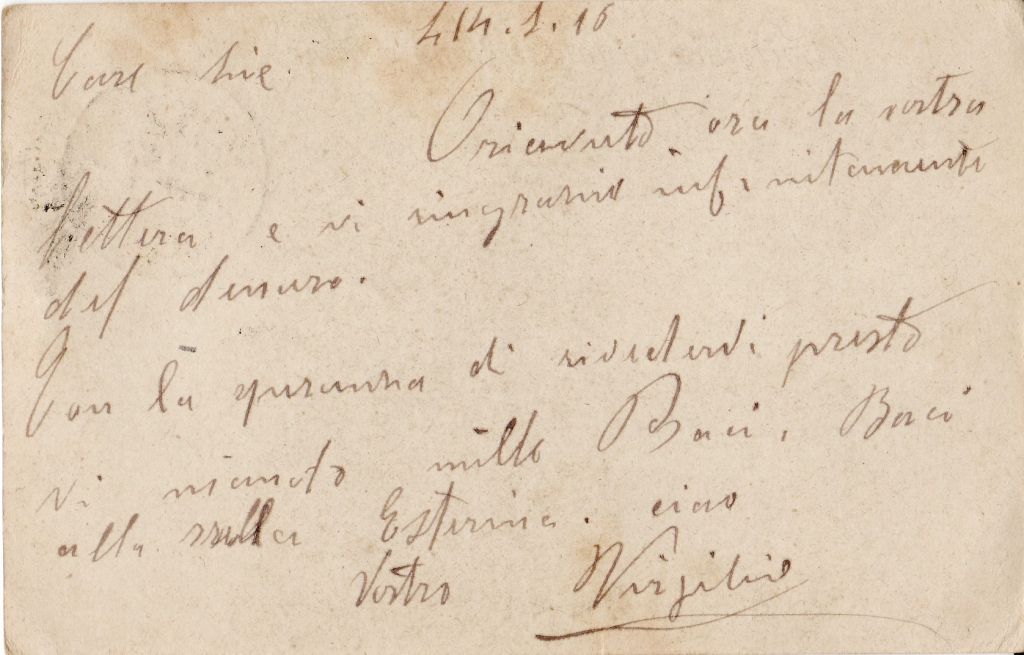 14.1.16
Care zie
O ricevuto ora la vostra
lettera e vi ringrazio infinitamente
del denaro.
Con la speranza di rivedervi presto
vi mando mille Baci, Baci
alla Esterina. ciao
Vostro Virgilio